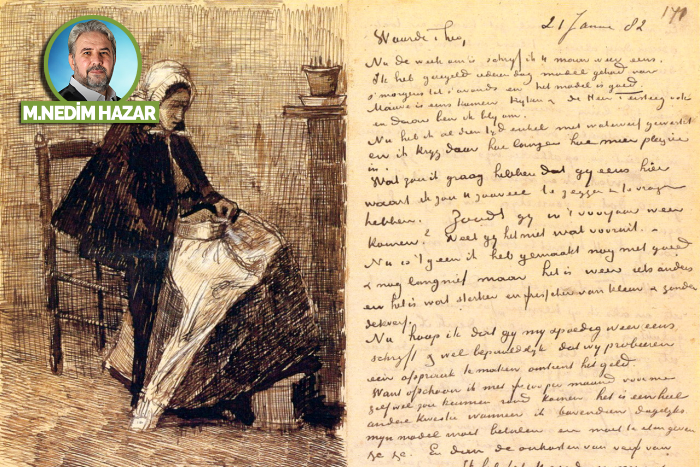 M.NEDİM HAZAR
171
21 Janu 82
Waarde Theo,
Nu de week om is schrijf ik U maar weer eens.
Ik heb geregeld iederen dag model gehad van
s'morgens tot s'avonds en het model is goed.
Mauve is eens komen kijken & de Heer Tersteeg ook
en daar ben ik blij om.
Nu heb ik al dien tijd enkel met waterverf gewerkt
en ik krijg daar hoe langer hoe meer plezier
in.
Wat zou ik graag hebben dat gij eens hier
waart ik zou U zooveel te zeggen & te vragen
hebben. Zoudt gij in 't voorjaar weer
komen? Weet gij het niet wat vooruit.
Nu is 't geen ik heb gemaakt nog niet goed
& nog lang niet maar het is weer iets anders
en het is wat sterker en frisscher van kleur & zonder
dekverf.
Nu hoop ik dat gij mij spoedig weer eens
schrijft & wel bepaaldelijk dat wij probeeren
een afspraak te maken omtrent het geld.
Want ofschoon ik met per maand voor mij
zelf wel zou kunnen rond komen het is een heel
andere kwestie wanneer ik bovendien dagelijks
mijn model moet betalen en moet te eten geven
En dan de onkosten van verf